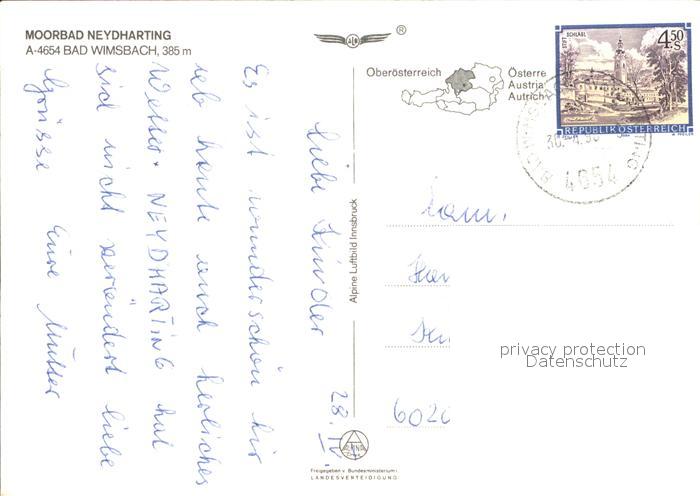 MOORBAD NEYDHARTING
A-4654 BAD WIMSBACH, 385 m
®
Oberösterreich
Österre
Austria
Autrich
STIFT SCHLÄGL
4.50 S
REPUBLIK ÖSTERREICH
4654
liebe Kinder 28. IV.
Es ist wunderschön hir
und heute auch herliches
Wetter. NEYDHARTING hat
sich nicht verändert liebe
Grüsse Eure Mutter
Alpine Luftbild Innsbruck
Fam.
6020
privacy protection
Datenschutz
Freigegeben v. Bundesministerium f.
LANDESVERTEIDIGUNG